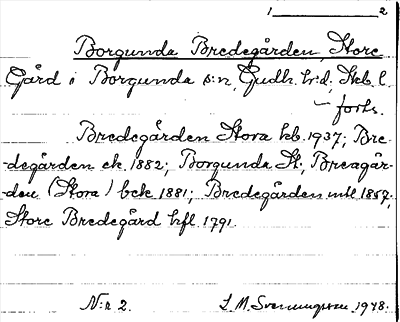 1 2
Borgunda Bredegården, Store
Gård i Borgunda s:n, Gudh. hr:d, Skb. l.
– forts.
Bredegården Stora kb. 1937; Bre-
degården ek. 1882; Borgunda St., Breagår-
den (Stora) bek 1881; Bredegården mtl 1857;
Store Bredegård hfl 1791.
N:r 2. J. M. Svenungsson 1948.